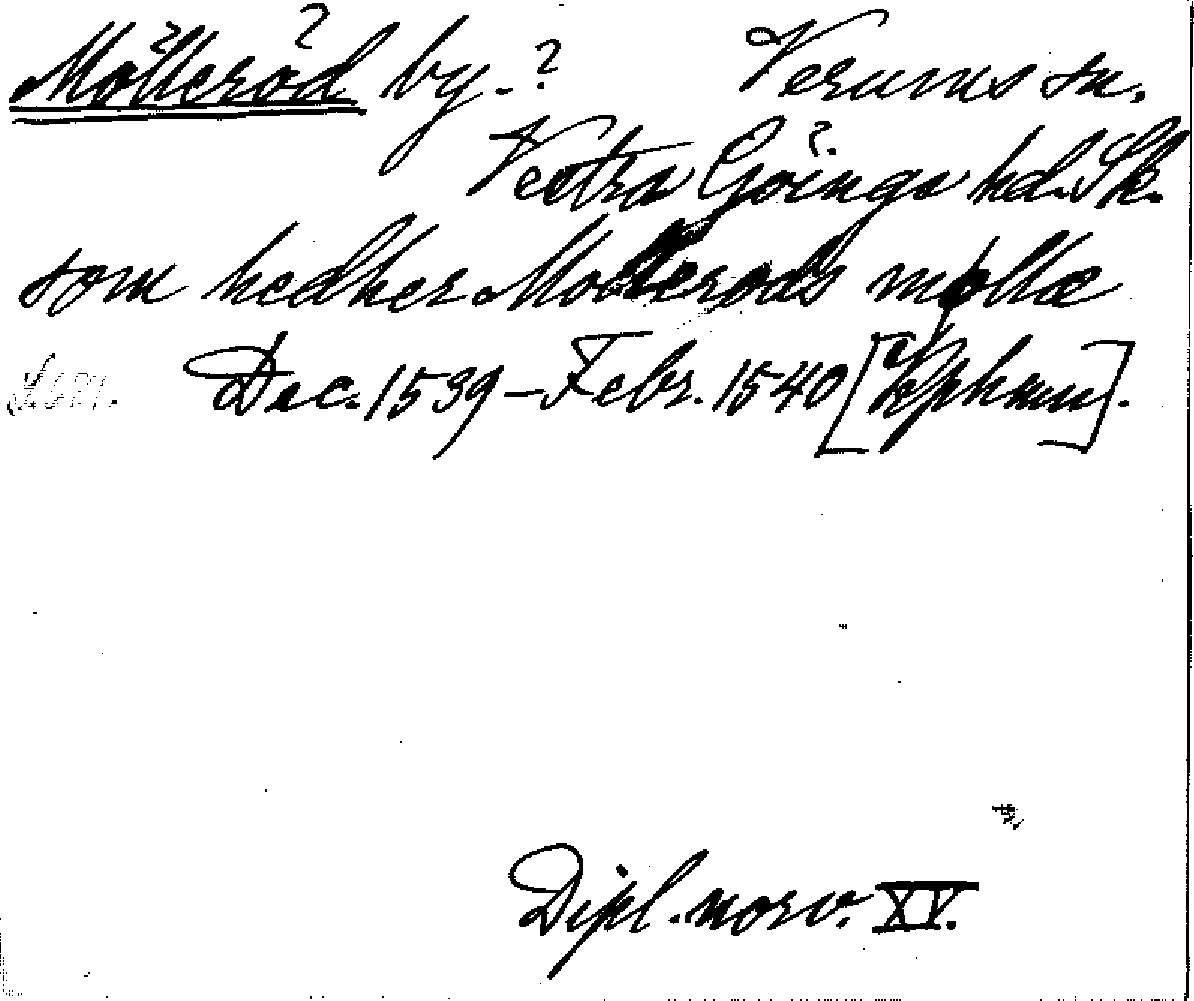 Mölleröd by.? Verums sn.
Vestra Göinge hd. Sk.
som hedher Mollerøds møllæ
Dec. 1539–Febr. 1540 [Kphmn].
Dipl. norv. XV.